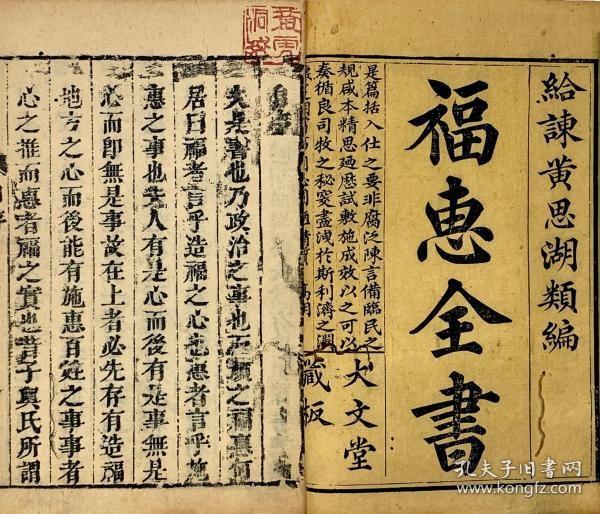 給諫黃思湖類編
福惠全書
是篇括入仕之要非腐泛陳言備臨民之
規咸本精思廼歷試敷施成效以之可以
奏循良司牧之秘窔盡洩於斯利濟之淵
大文堂
藏板
夫是書也乃政治之事也而顏之福惠何
居曰福者言乎造福之心也惠者言乎施
惠之事也夫人有是心而後有是事無是
心而卽無是事故在上者必先存有造福
地方之心而後能有施惠百姓之事事者
心之推而惠者福之實也昔子輿氏所謂
孔夫子旧书网
www.kongfz.com